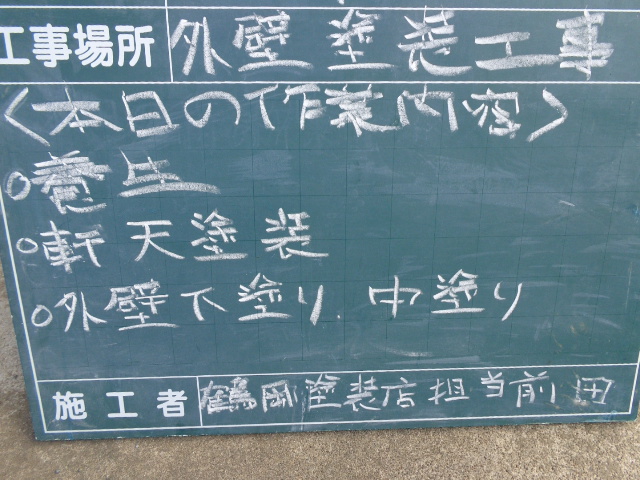 工事場所 外壁塗装工事
〈本日の作業内容〉
○養生
○軒天塗装
○外壁下塗り、中塗り
施工者 鶴岡塗装店担当前田